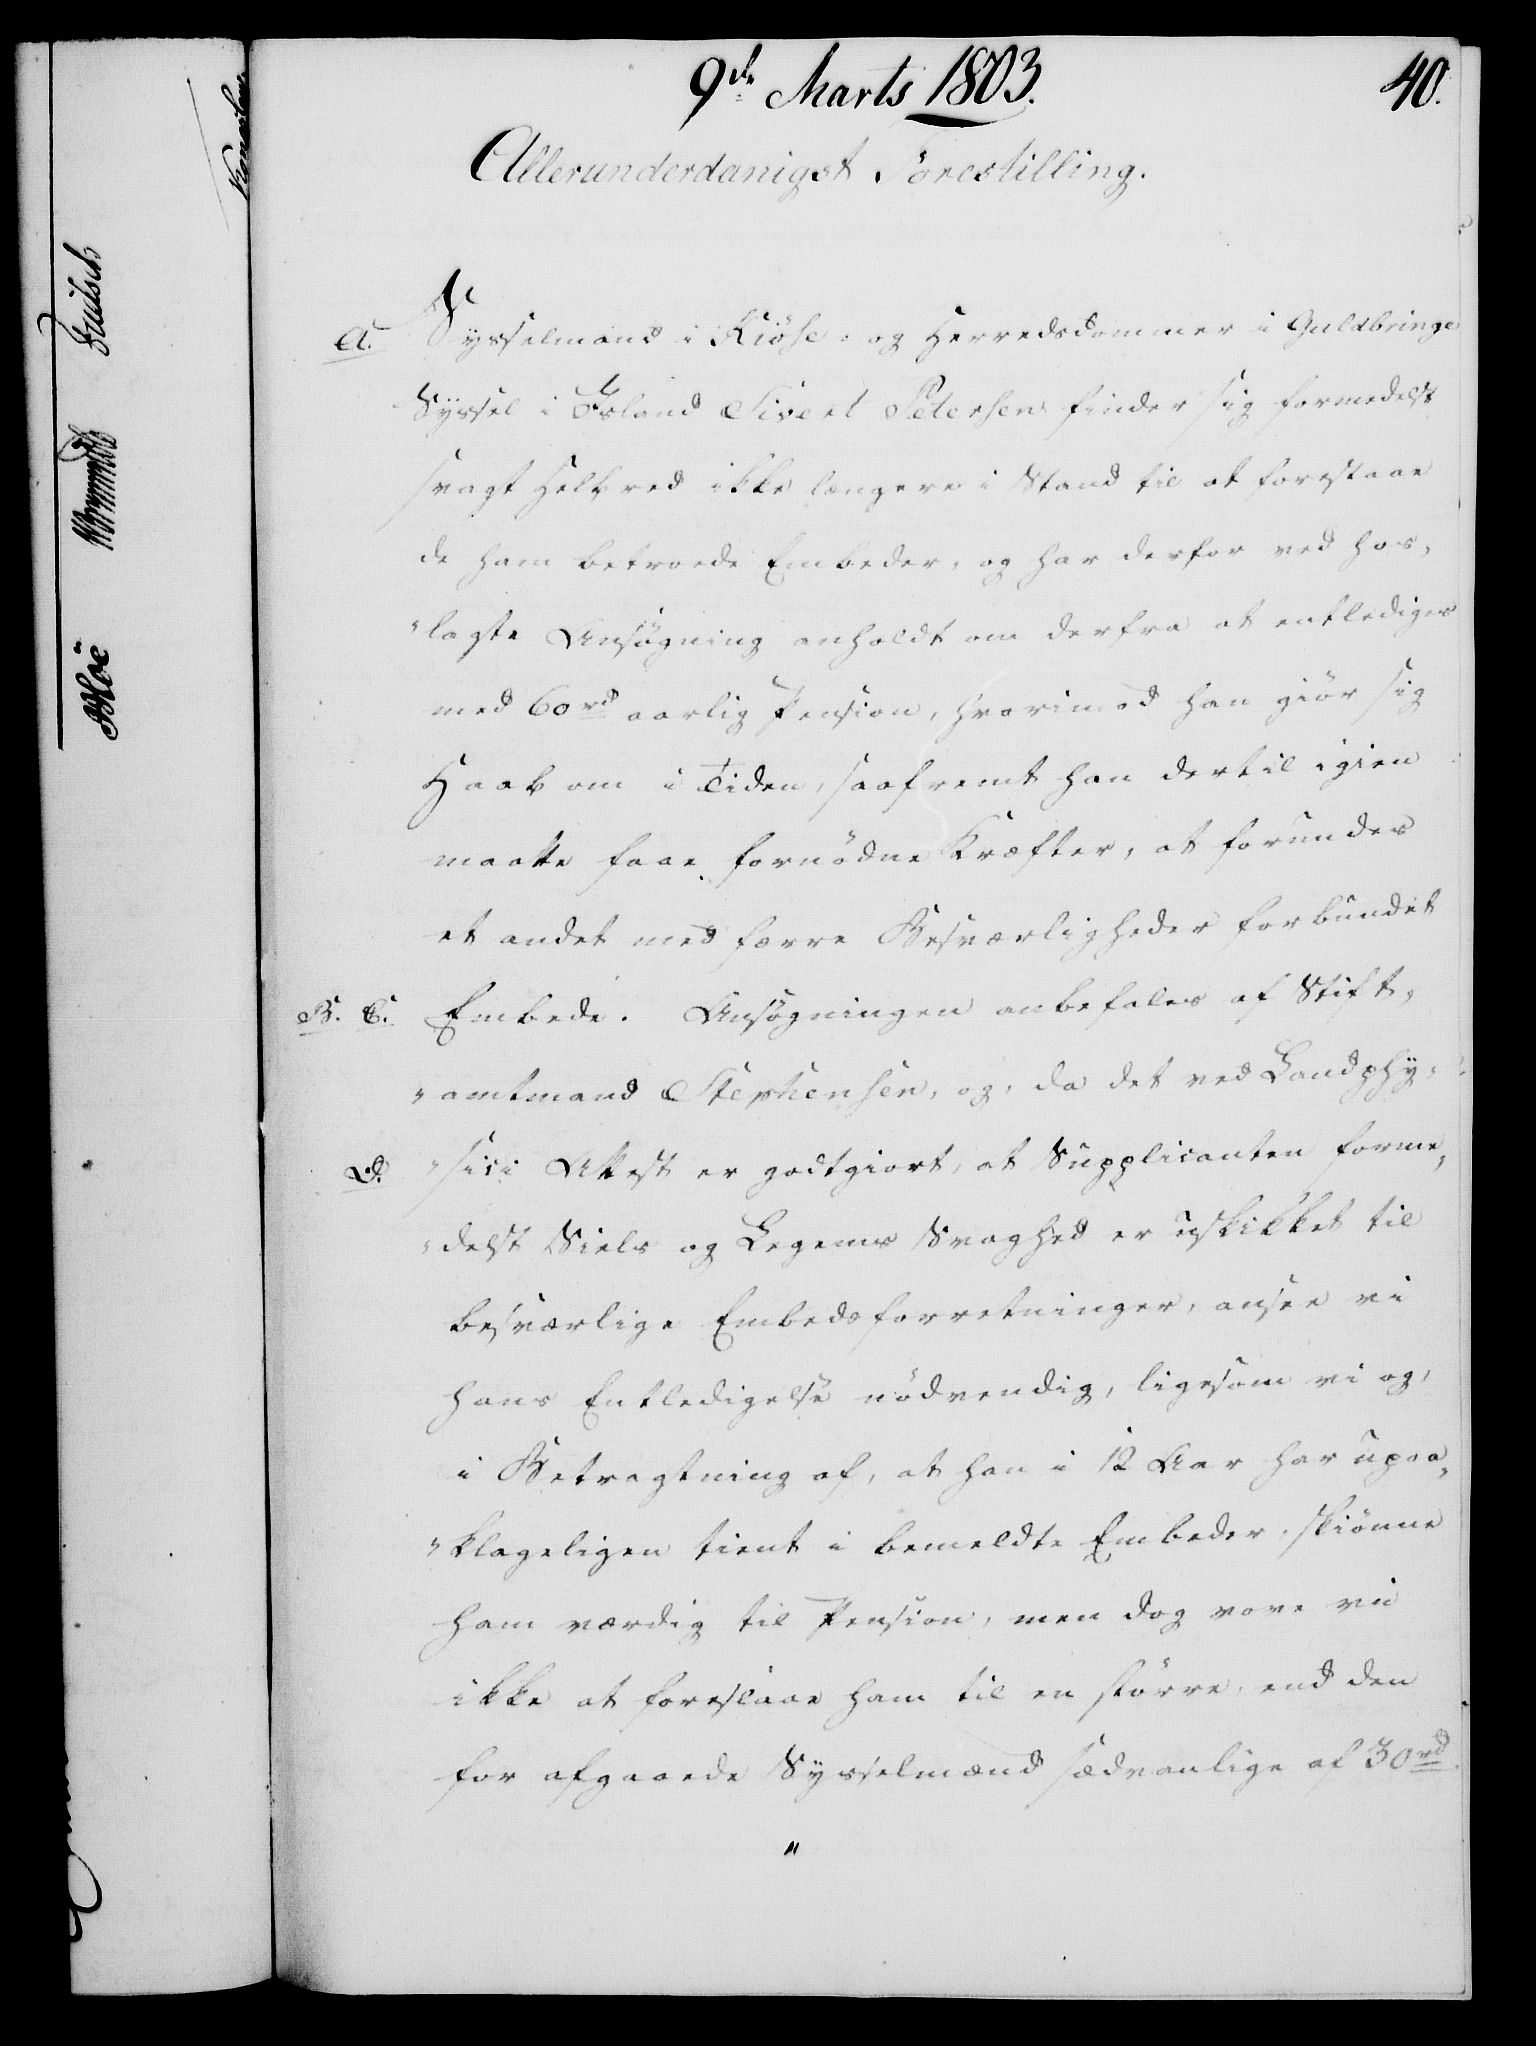 9de Marts 1803.
40.
Allerunderdanigst Forestilling.
A. Sysselmand i Kiöse- og Herredsdommer i Guldbringe
Syssel i Island Sivert Petersen finder sig formedelst
svagt Helbred ikke længere i Stand til at forestaae
de ham betroede Embeder, og har derfor ved hos„
„lagte Ansøgning anholdt om derfra at entlediges
med 60 rd aarlig Pension, hvorimod han giör sig
Haab om i Tiden, saafremt han dertil igien
maatte faae fornödne Kræfter, at forundes
et andet med færre Besværligheder forbundet
B. C. Embede. Ansøgningen anbefales af Stift„
„amtmand Stephensen, og, da det ved Landphy„
D. „sici Attest er godtgiort, at Supplicanten forme„
„delst Siels og Legems Svaghed er uskikket til
besværlige Embedsforretninger, ansee vi
hans Entledigelse nödvendig, ligesom vi og,
i Betragtning af, at han i 12 Aar har upaa„
„klageligen tient i bemeldte Embeder, skiönne
ham værdig til Pension, men dog vove vi
ikke at foreslaae ham til en större, end den
for afgaaede Sysselmænd sædvanlige af 30 rd.
"